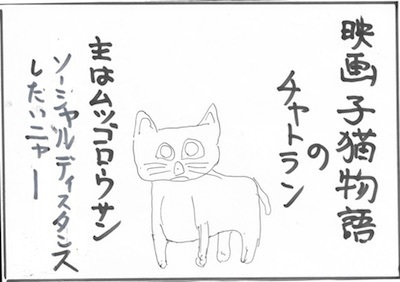 映画子猫物語
の
チャトラン
主はムツゴロウサン
ソーシャルディスタンス
したいニャー